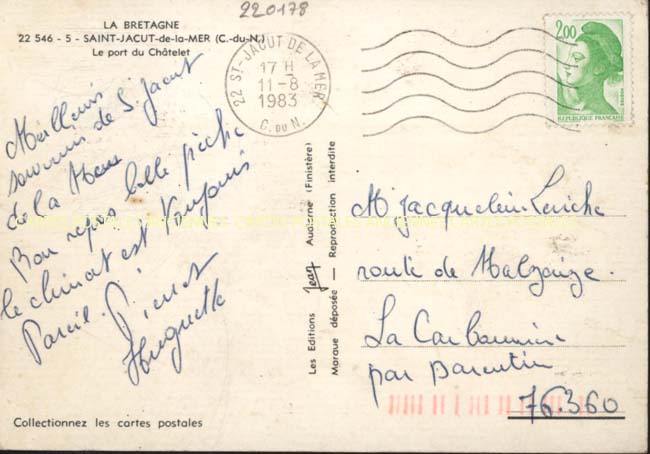 220178
LA BRETAGNE
22 546 - 5 - SAINT-JACUT-de-la-MER (C.-du-N.)
Le port du Châtelet
22 ST-JACUT DE LA MER
17 H
11-8
1983
C. DU N.
2,00
REPUBLIQUE FRANÇAISE
Meilleurs
souvenirs de S. Jacut
de la Mer
Bon repos belle pêche
le climat est toujours
Pareil. Pierrot
Huguette
Les Editions Jean Audierne (Finistère)
Marque déposée — Reproduction interdite
M. Jacquelin
route de
La
par Barentin
76.360
Collectionnez les cartes postales